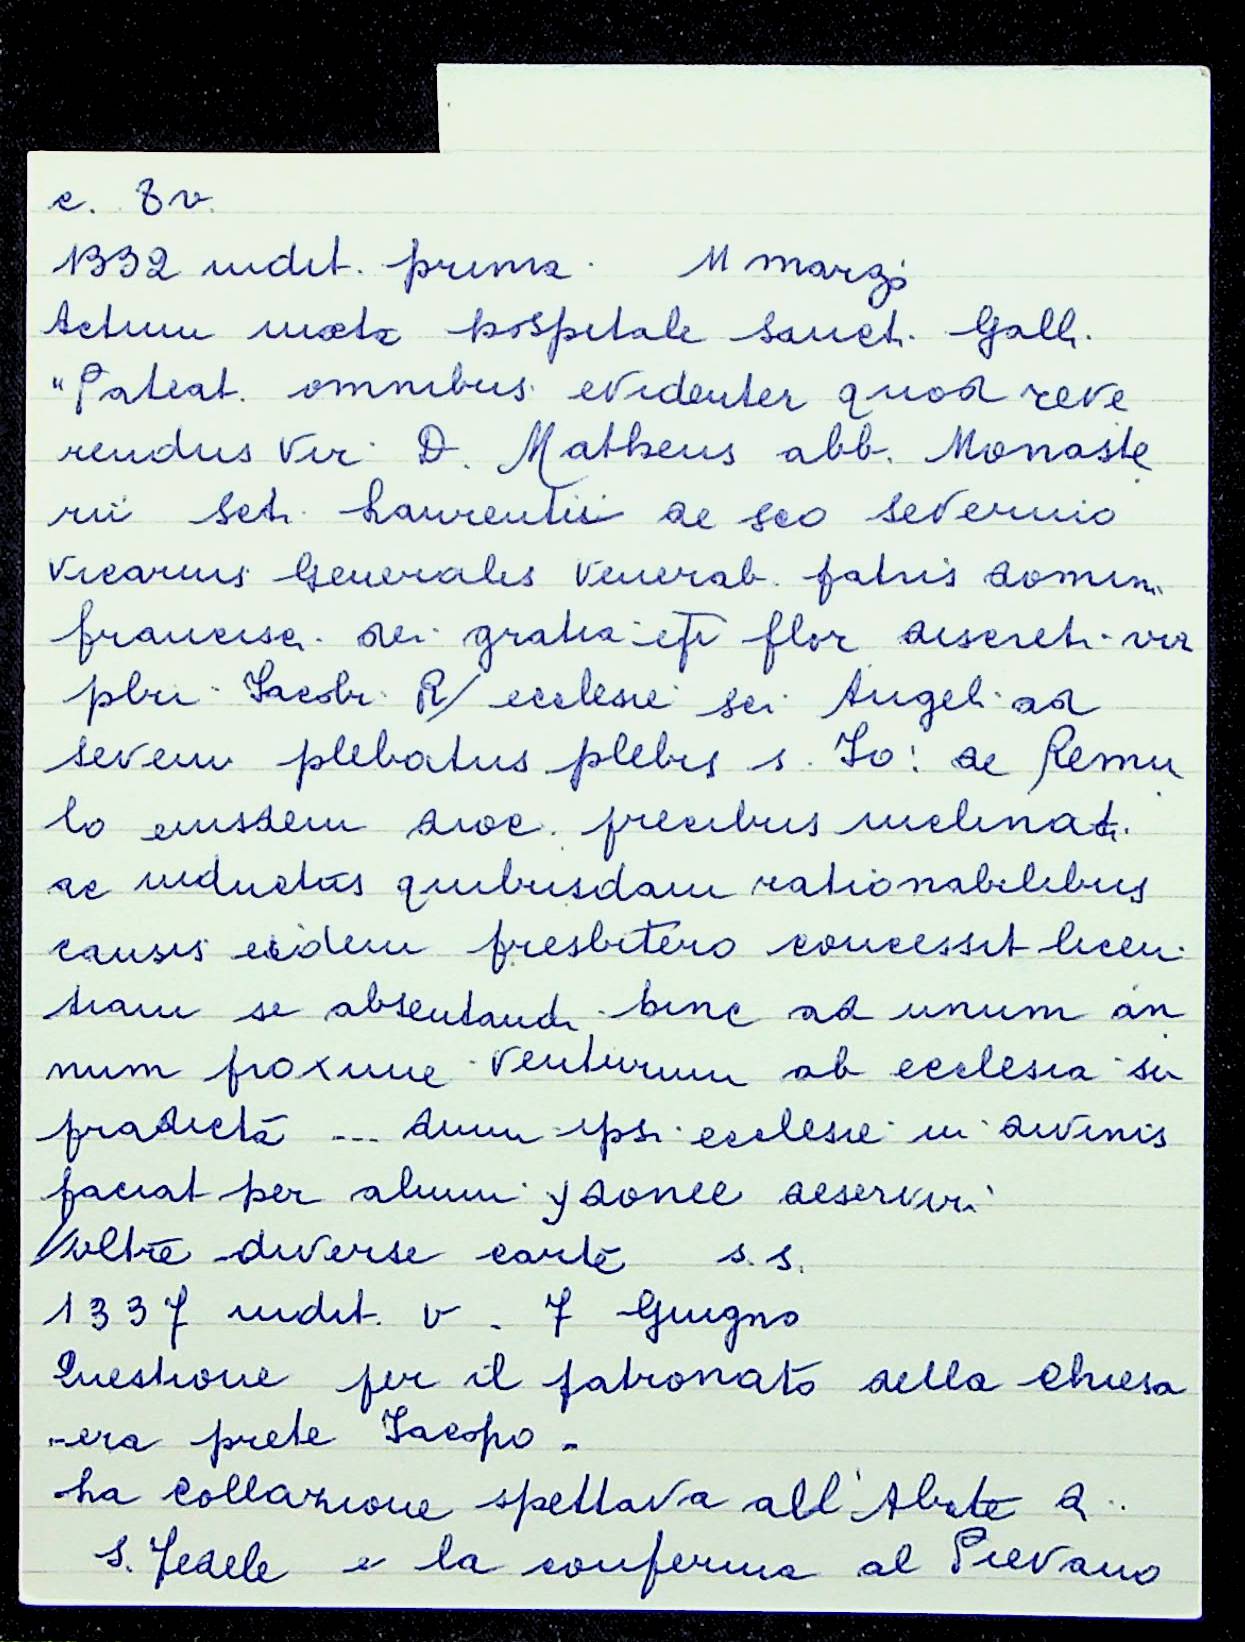 c. 8v.
1332 indit. prima. 11 marzo
Actum iuxta hospitale sancti Galli.
"Pateat omnibus evidenter quod reve
rendus vir D. Matheus abb. Monaste
rii scti. Laurentii de sco severino
vicarius Generales venerab. patris domini
francisci dei gratia epi flor discreti viri
pbri Iacobi R/ ecclesie sci Angeli ad
plebatus plebis s. Io: de Remu
lo eiusdem dioc. precibus inclinat.
ac inductus quibusdam rationabilibus
causis eidem presbitero concessit licen
tiam se absentandi hinc ad unum an
num proxime venturum ab ecclesia su
pradicta --- dum ipsi ecclesie in divinis
faciat per alium ydonee deserviri
/oltre diverse carte s.s.
1337 indit. v. 7 Giugno
Questione per il patronato della Chiesa
-era prete Iacopo -
La collazione spettava all'Abate d..
S. Fedele e la conferma al Pievano